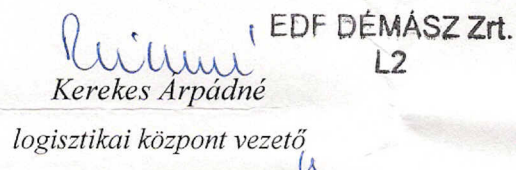 EDF DÉMÁSZ Zrt.
L2
Kerekes Árpádné
logisztikai központ vezető